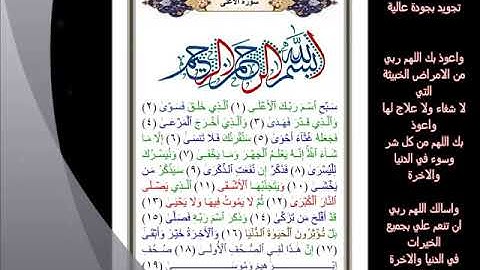 سورة الأعلى
بسم الله الرحمن الرحيم
سَبِّحِ ٱسْمَ رَبِّكَ ٱلْأَعْلَى (١) ٱلَّذِى خَلَقَ فَسَوَّىٰ (٢)
وَٱلَّذِى قَدَّرَ فَهَدَىٰ (٣) وَٱلَّذِىٓ أَخْرَجَ ٱلْمَرْعَىٰ (٤)
فَجَعَلَهُۥ غُثَآءً أَحْوَىٰ (٥) سَنُقْرِئُكَ فَلَا تَنسَىٰٓ (٦) إِلَّا مَا
شَآءَ ٱللَّهُ إِنَّهُۥ يَعْلَمُ ٱلْجَهْرَ وَمَا يَخْفَىٰ (٧) وَنُيَسِّرُكَ
لِلْيُسْرَىٰ (٨) فَذَكِّرْ إِن نَّفَعَتِ ٱلذِّكْرَىٰ (٩) سَيَذَّكَّرُ مَن
يَخْشَىٰ (١٠) وَيَتَجَنَّبُهَا ٱلْأَشْقَى (١١) ٱلَّذِى يَصْلَى
ٱلنَّارَ ٱلْكُبْرَىٰ (١٢) ثُمَّ لَا يَمُوتُ فِيهَا وَلَا يَحْيَىٰ (١٣)
قَدْ أَفْلَحَ مَن تَزَكَّىٰ (١٤) وَذَكَرَ ٱسْمَ رَبِّهِۦ فَصَلَّىٰ (١٥)
بَلْ تُؤْثِرُونَ ٱلْحَيَوٰةَ ٱلدُّنْيَا (١٦) وَٱلْـَٔاخِرَةُ خَيْرٌ وَأَبْقَىٰٓ
(١٧) إِنَّ هَٰذَا لَفِى ٱلصُّحُفِ ٱلْأُولَىٰ (١٨) صُحُفِ
إِبْرَٰهِيمَ وَمُوسَىٰ (١٩)
تجويد بجودة عالية
واعوذ بك اللهم ربي
من الامراض الخبيثة
التي
لا شفاء ولا علاج لها
واعوذ
بك اللهم من كل شر
وسوء في الدنيا
والاخرة
واسالك اللهم ربي
ان تنعم علي بجميع
الخيرات
في الدنيا والاخرة